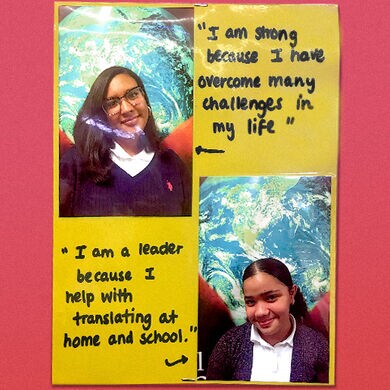 "I am strong
because I have
overcome many
challenges in
my life"
"I am a leader
because I
help with
translating at
home and school."